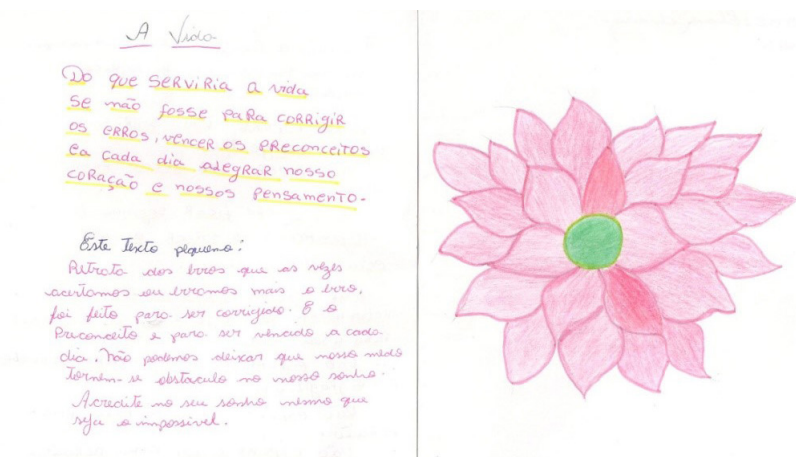 A Vida
Do que serviria a vida
se não fosse para corrigir
os erros, vencer os preconceitos
e a cada dia alegrar nosso
coração e nossos pensamento.
Este Texto pequeno:
Retrata dos erros que as vezes
acertamos ou erramos mais o erro,
foi feito para ser corrigido. E o
Preconceito e para ser vencido a cada
dia. Não podemos deixar que nosso medo
tornem-se obstaculo no nosso sonho.
Acredite no seu sonho mesmo que
seja o impossivel.